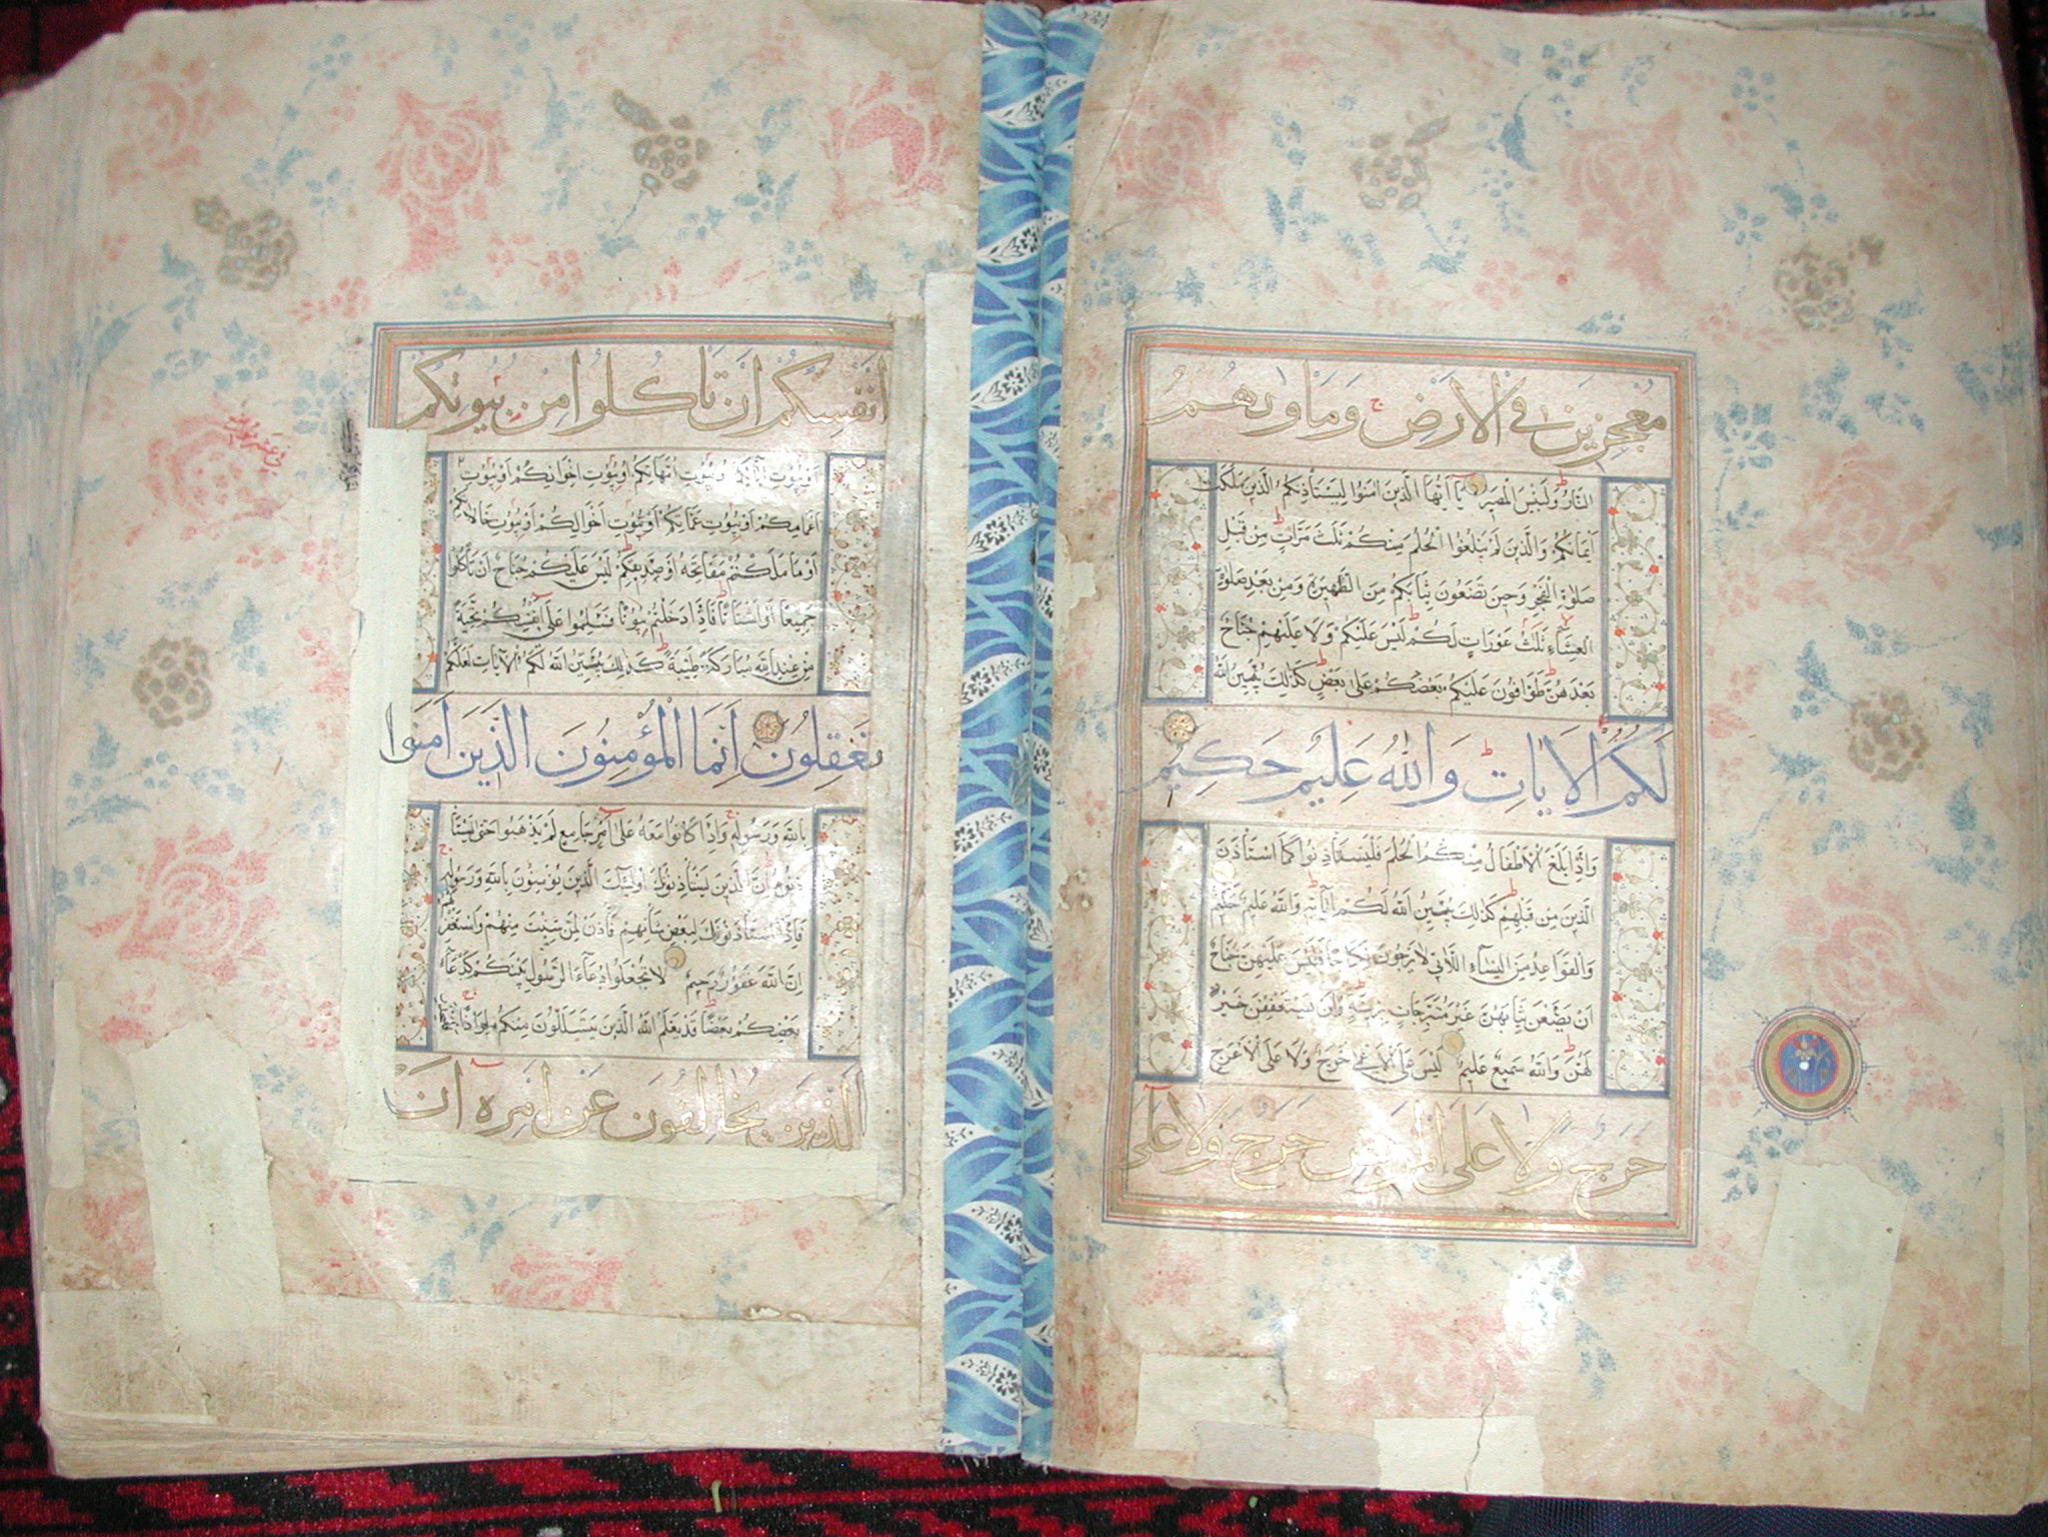 مُعْجِزِينَ فِي الْاَرْضِ وَمَاْوٰيهُمُ
النَّارُ وَلَبِئْسَ الْمَصِيرُ يَا اَيُّهَا الَّذِينَ اٰمَنُوا لِيَسْتَاْذِنْكُمُ الَّذِينَ مَلَكَتْ
اَيْمَانُكُمْ وَالَّذِينَ لَمْ يَبْلُغُوا الْحُلُمَ مِنْكُمْ ثَلٰثَ مَرَّاتٍ مِنْ قَبْلِ
صَلٰوةِ الْفَجْرِ وَحِينَ تَضَعُونَ ثِيَابَكُمْ مِنَ الظَّهِيرَةِ وَمِنْ بَعْدِ صَلٰوةِ
الْعِشَاءِ ثَلٰثُ عَوْرَاتٍ لَكُمْ لَيْسَ عَلَيْكُمْ وَلَا عَلَيْهِمْ جُنَاحٌ
بَعْدَهُنَّ طَوَّافُونَ عَلَيْكُمْ بَعْضُكُمْ عَلٰى بَعْضٍ كَذٰلِكَ يُبَيِّنُ اللّٰهُ
لَكُمُ الْاٰيَاتِ وَاللّٰهُ عَلِيمٌ حَكِيمٌ
وَاِذَا بَلَغَ الْاَطْفَالُ مِنْكُمُ الْحُلُمَ فَلْيَسْتَاْذِنُوا كَمَا اسْتَاْذَنَ
الَّذِينَ مِنْ قَبْلِهِمْ كَذٰلِكَ يُبَيِّنُ اللّٰهُ لَكُمْ اٰيَاتِهِ وَاللّٰهُ عَلِيمٌ حَكِيمٌ
وَالْقَوَاعِدُ مِنَ النِّسَاءِ اللَّاتِي لَا يَرْجُونَ نِكَاحًا فَلَيْسَ عَلَيْهِنَّ جُنَاحٌ
اَنْ يَضَعْنَ ثِيَابَهُنَّ غَيْرَ مُتَبَرِّجَاتٍ بِزِينَةٍ وَاَنْ يَسْتَعْفِفْنَ خَيْرٌ
لَهُنَّ وَاللّٰهُ سَمِيعٌ عَلِيمٌ لَيْسَ عَلَى الْاَعْمٰى حَرَجٌ وَلَا عَلَى الْاَعْرَجِ
حَرَجٌ وَلَا عَلَى الْمَرِيضِ حَرَجٌ وَلَا عَلٰى
اَنْفُسِكُمْ اَنْ تَاْكُلُوا مِنْ بُيُوتِكُمْ
اَوْ بُيُوتِ اٰبَائِكُمْ اَوْ بُيُوتِ اُمَّهَاتِكُمْ اَوْ بُيُوتِ اِخْوَانِكُمْ اَوْ بُيُوتِ
اَعْمَامِكُمْ اَوْ بُيُوتِ عَمَّاتِكُمْ اَوْ بُيُوتِ اَخْوَالِكُمْ اَوْ بُيُوتِ خَالَاتِكُمْ
اَوْ مَا مَلَكْتُمْ مَفَاتِحَهُ اَوْ صَدِيقِكُمْ لَيْسَ عَلَيْكُمْ جُنَاحٌ اَنْ تَاْكُلُوا
جَمِيعًا اَوْ اَشْتَاتًا فَاِذَا دَخَلْتُمْ بُيُوتًا فَسَلِّمُوا عَلٰى اَنْفُسِكُمْ تَحِيَّةً
مِنْ عِنْدِ اللّٰهِ مُبَارَكَةً طَيِّبَةً كَذٰلِكَ يُبَيِّنُ اللّٰهُ لَكُمُ الْاٰيَاتِ لَعَلَّكُمْ
تَعْقِلُونَ اِنَّمَا الْمُؤْمِنُونَ الَّذِينَ اٰمَنُوا
بِاللّٰهِ وَرَسُولِهِ وَاِذَا كَانُوا مَعَهُ عَلٰى اَمْرٍ جَامِعٍ لَمْ يَذْهَبُوا حَتّٰى يَسْتَاْ
ذِنُوهُ اِنَّ الَّذِينَ يَسْتَاْذِنُونَكَ اُولٰئِكَ الَّذِينَ يُؤْمِنُونَ بِاللّٰهِ وَرَسُولِهِ
فَاِذَا اسْتَاْذَنُوكَ لِبَعْضِ شَاْنِهِمْ فَاْذَنْ لِمَنْ شِئْتَ مِنْهُمْ وَاسْتَغْفِرْ لَهُمُ
اِنَّ اللّٰهَ غَفُورٌ رَحِيمٌ لَا تَجْعَلُوا دُعَاءَ الرَّسُولِ بَيْنَكُمْ كَدُعَاءِ
بَعْضِكُمْ بَعْضًا قَدْ يَعْلَمُ اللّٰهُ الَّذِينَ يَتَسَلَّلُونَ مِنْكُمْ لِوَاذًا
الَّذِينَ يُخَالِفُونَ عَنْ اَمْرِهِ اَنْ